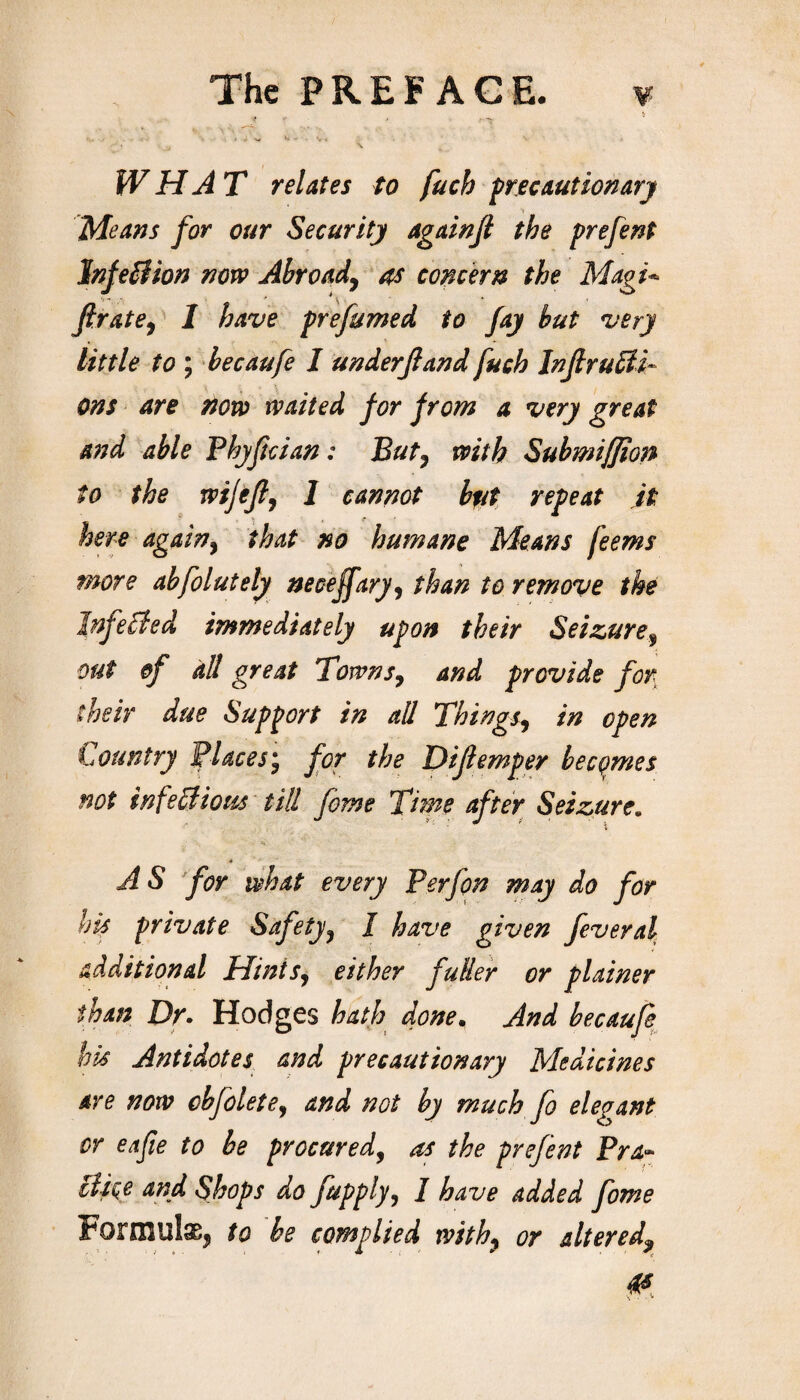 The PREFACE. v
WHAT relates to ſuch precautionary
Means for our Security againſt the preſent
Infection now Abroad, as concern the Magi-
ſtrate, I have preſumed to ſay but very
little to; becauſe I underſtand ſuch Inſtructi-
ons are now waited for from a very great
and able Phyſician: But, with Submiſſion
to the wiſeſt, I cannot but repeat it
here again, that no humane Means ſeems
more abſolutely neceſſary, than to remove the
Infected immediately upon their Seizure,
out of all great Towns, and provide for
their due Support in all Things, in open
Country Places; for the Diſtemper becomes
not infectious till ſome Time after Seizure.
AS for what every Perſon may do for
his private Safety, I have given ſeveral
additional Hints, either fuller or plainer
than Dr. Hodges hath done. And becauſe
his Antidotes and precautionary Medicines
are now obſolete, and not by much ſo elegant
or eaſie to be procured, as the preſent Pra-
ctice and Shops do ſupply, I have added ſome
Formulæ, to be complied with, or altered,
as